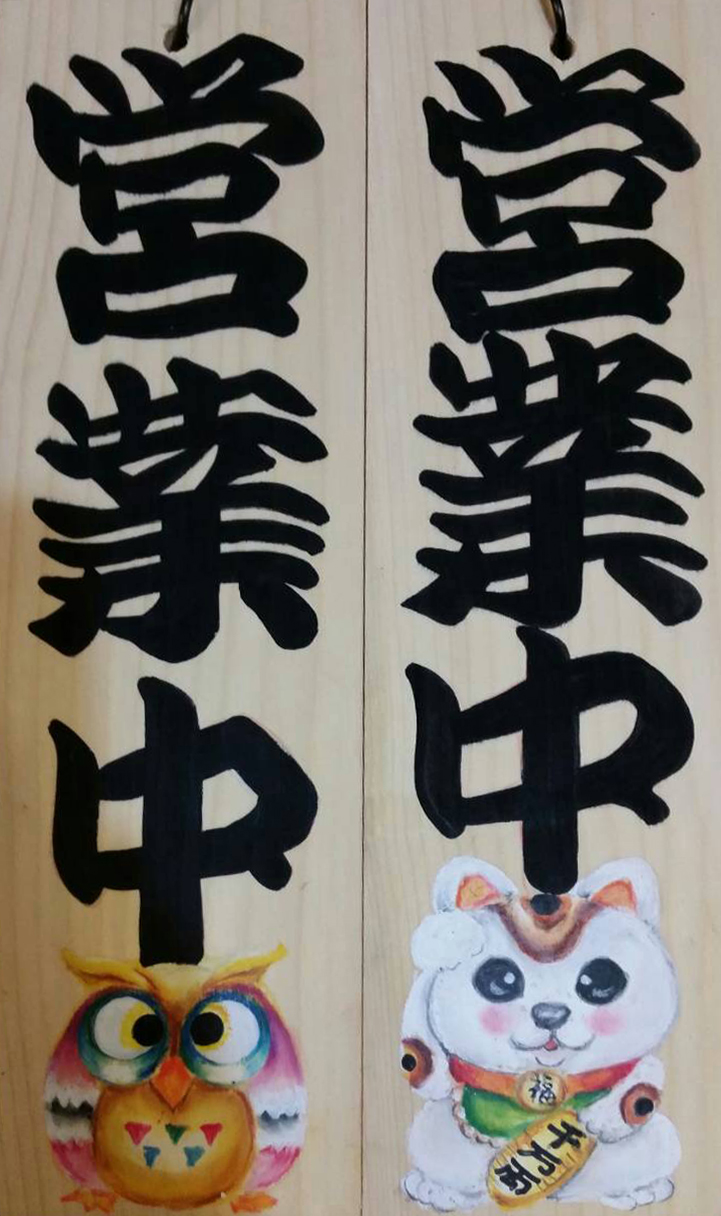 営業中
営業中
福
千万両